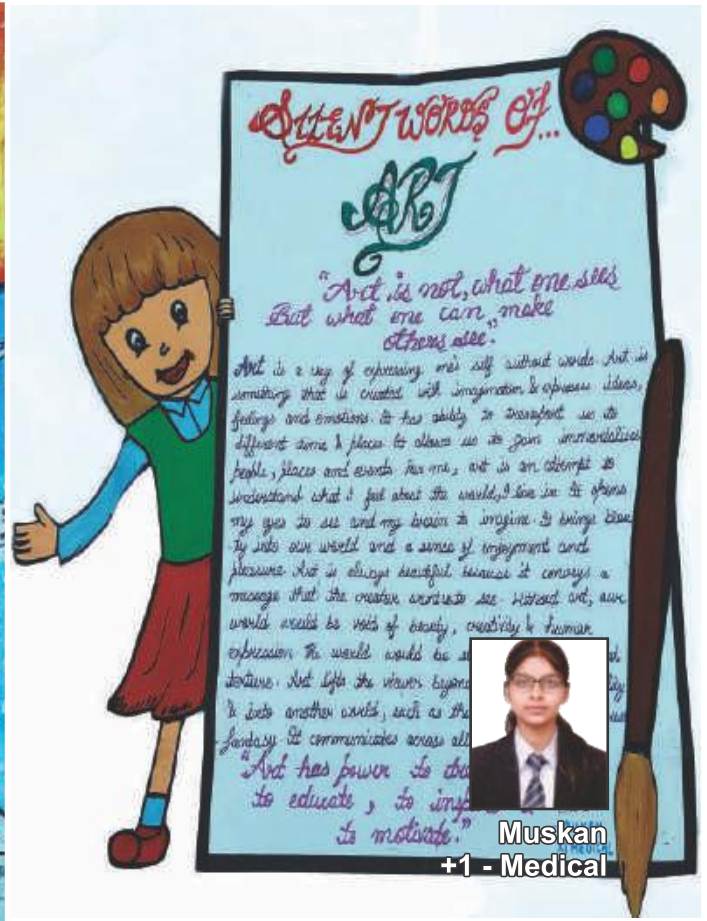 SILENT WORDS OF...
ART
"Art is not, what one sees
But what one can make
others see."
Art is a way of expressing one's self without words. Art is
something that is created with imagination & expresses ideas,
feelings and emotions. It has ability to transport us to
different time & places. It allows us to gain immortalises
people, places and events. For me, art is an attempt to
understand what I feel about the world, I live in. It opens
my eyes to see and my brain to imagine. It brings beau
ty into our world and a sense of enjoyment and
pleasure. Art is always beautiful because it conveys a
message that the creator wants to see. Without art, our
world would be void of beauty, creativity & human
expression. The world would be
texture. Art lifts the viewer beyond
& into another world, such as the
fantasy. It communicates across all
"Art has power to
to educate, to
to motivate."
MEDICAL
Muskan
+1 - Medical